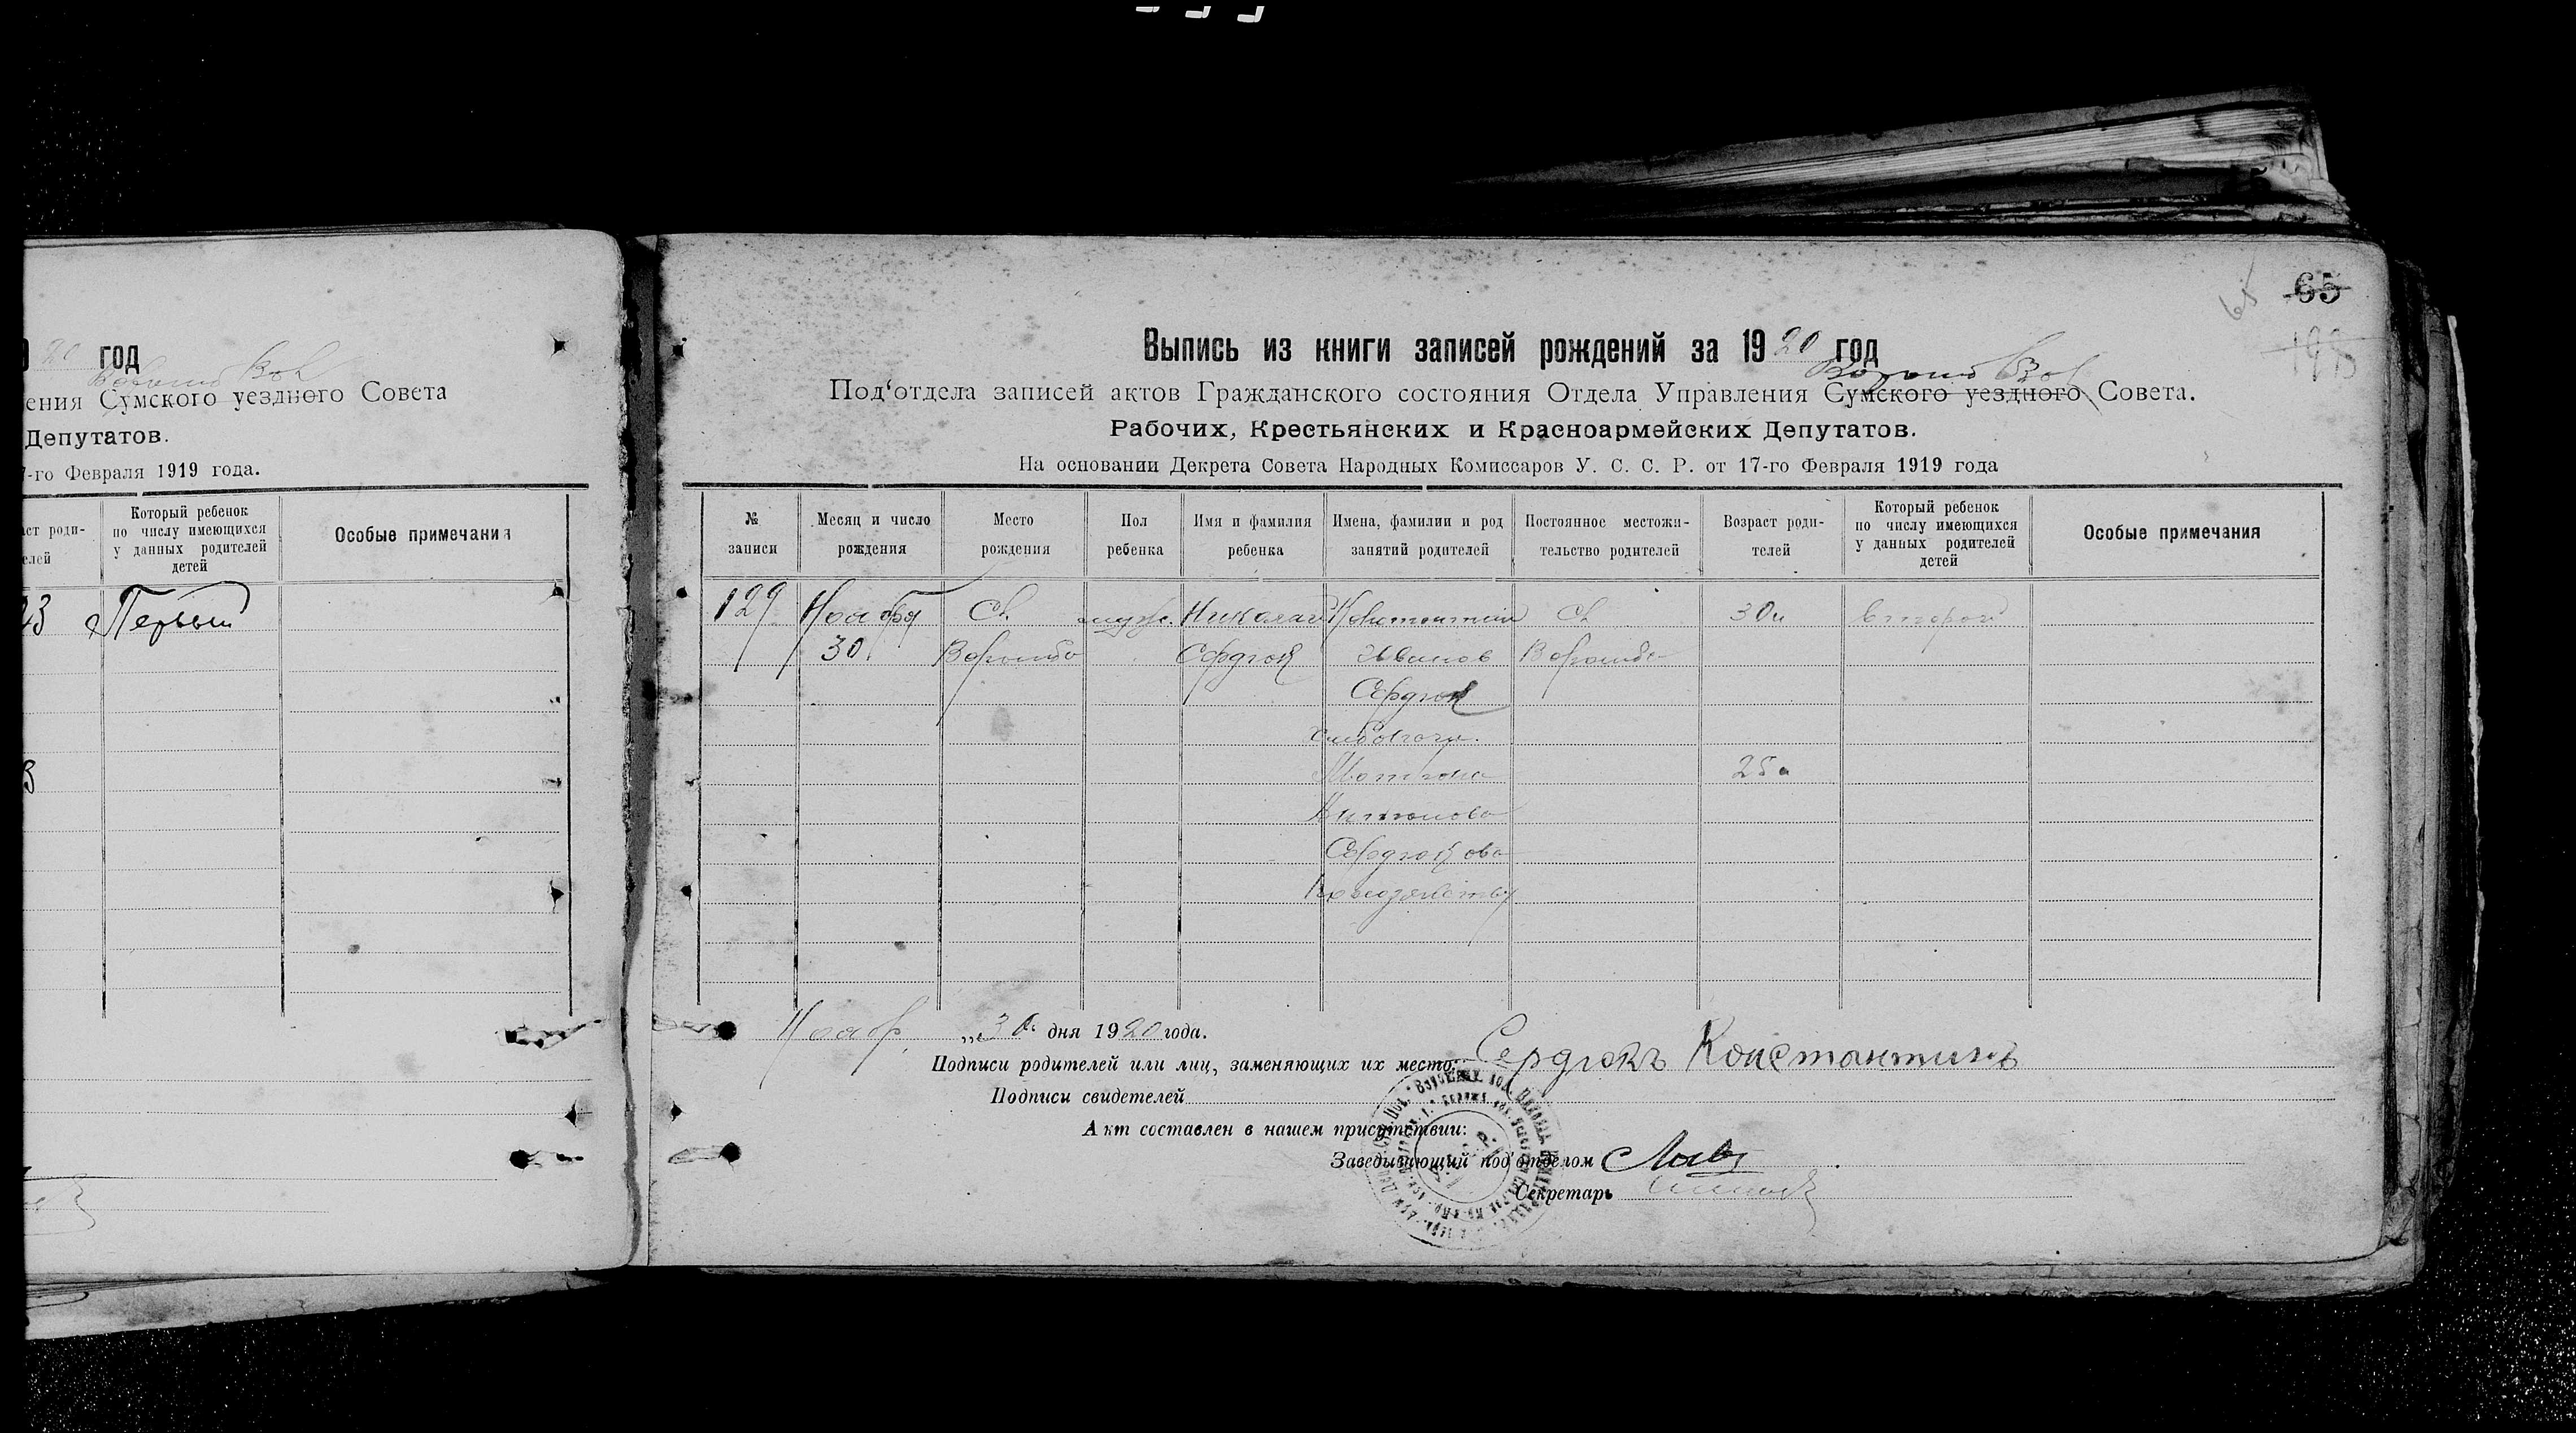 20 год
ения Сумского уездного Совета
Депутатов.
-го Февраля 1919 года.
Который ребенок
по числу имеющихся
у данных родителей
детей
Особые примечания
Первый
65
65
Выпись из книги записей рождений за 1920 год
Под‘отдела записей актов Гражданского состояния Отдела Управления Сумского уездного Совета.
Рабочих, Крестьянских и Красноармейских Депутатов.
На основании Декрета Совета Народных Комиссаров У. С. С. Р. от 17-го Февраля 1919 года
№ записи
Месяц и число рождения
Место рождения
Пол ребенка
Имя и фамилия ребенка
Имена, фамилии и род занятий родителей
Постоянное местожительство родителей
Возраст родителей
Который ребенок по числу имеющихся у данных родителей детей
Особые примечания
129 Ноября С. мужс. Николай Константин С. 30 Второй
30 Ворожба Сердюк Иванов Ворожба
Сердюк
Хлебопаш.
Мотрона 25
Антонова
Сердюкова
Ноябр. „30“ дня 1920 года.
Подписи родителей или лиц, заменяющих их место: Сердюкъ Константинъ
Подписи свидетелей
Акт составлен в нашем присутствии:
Заведывающий под‘отделом
Секретарь